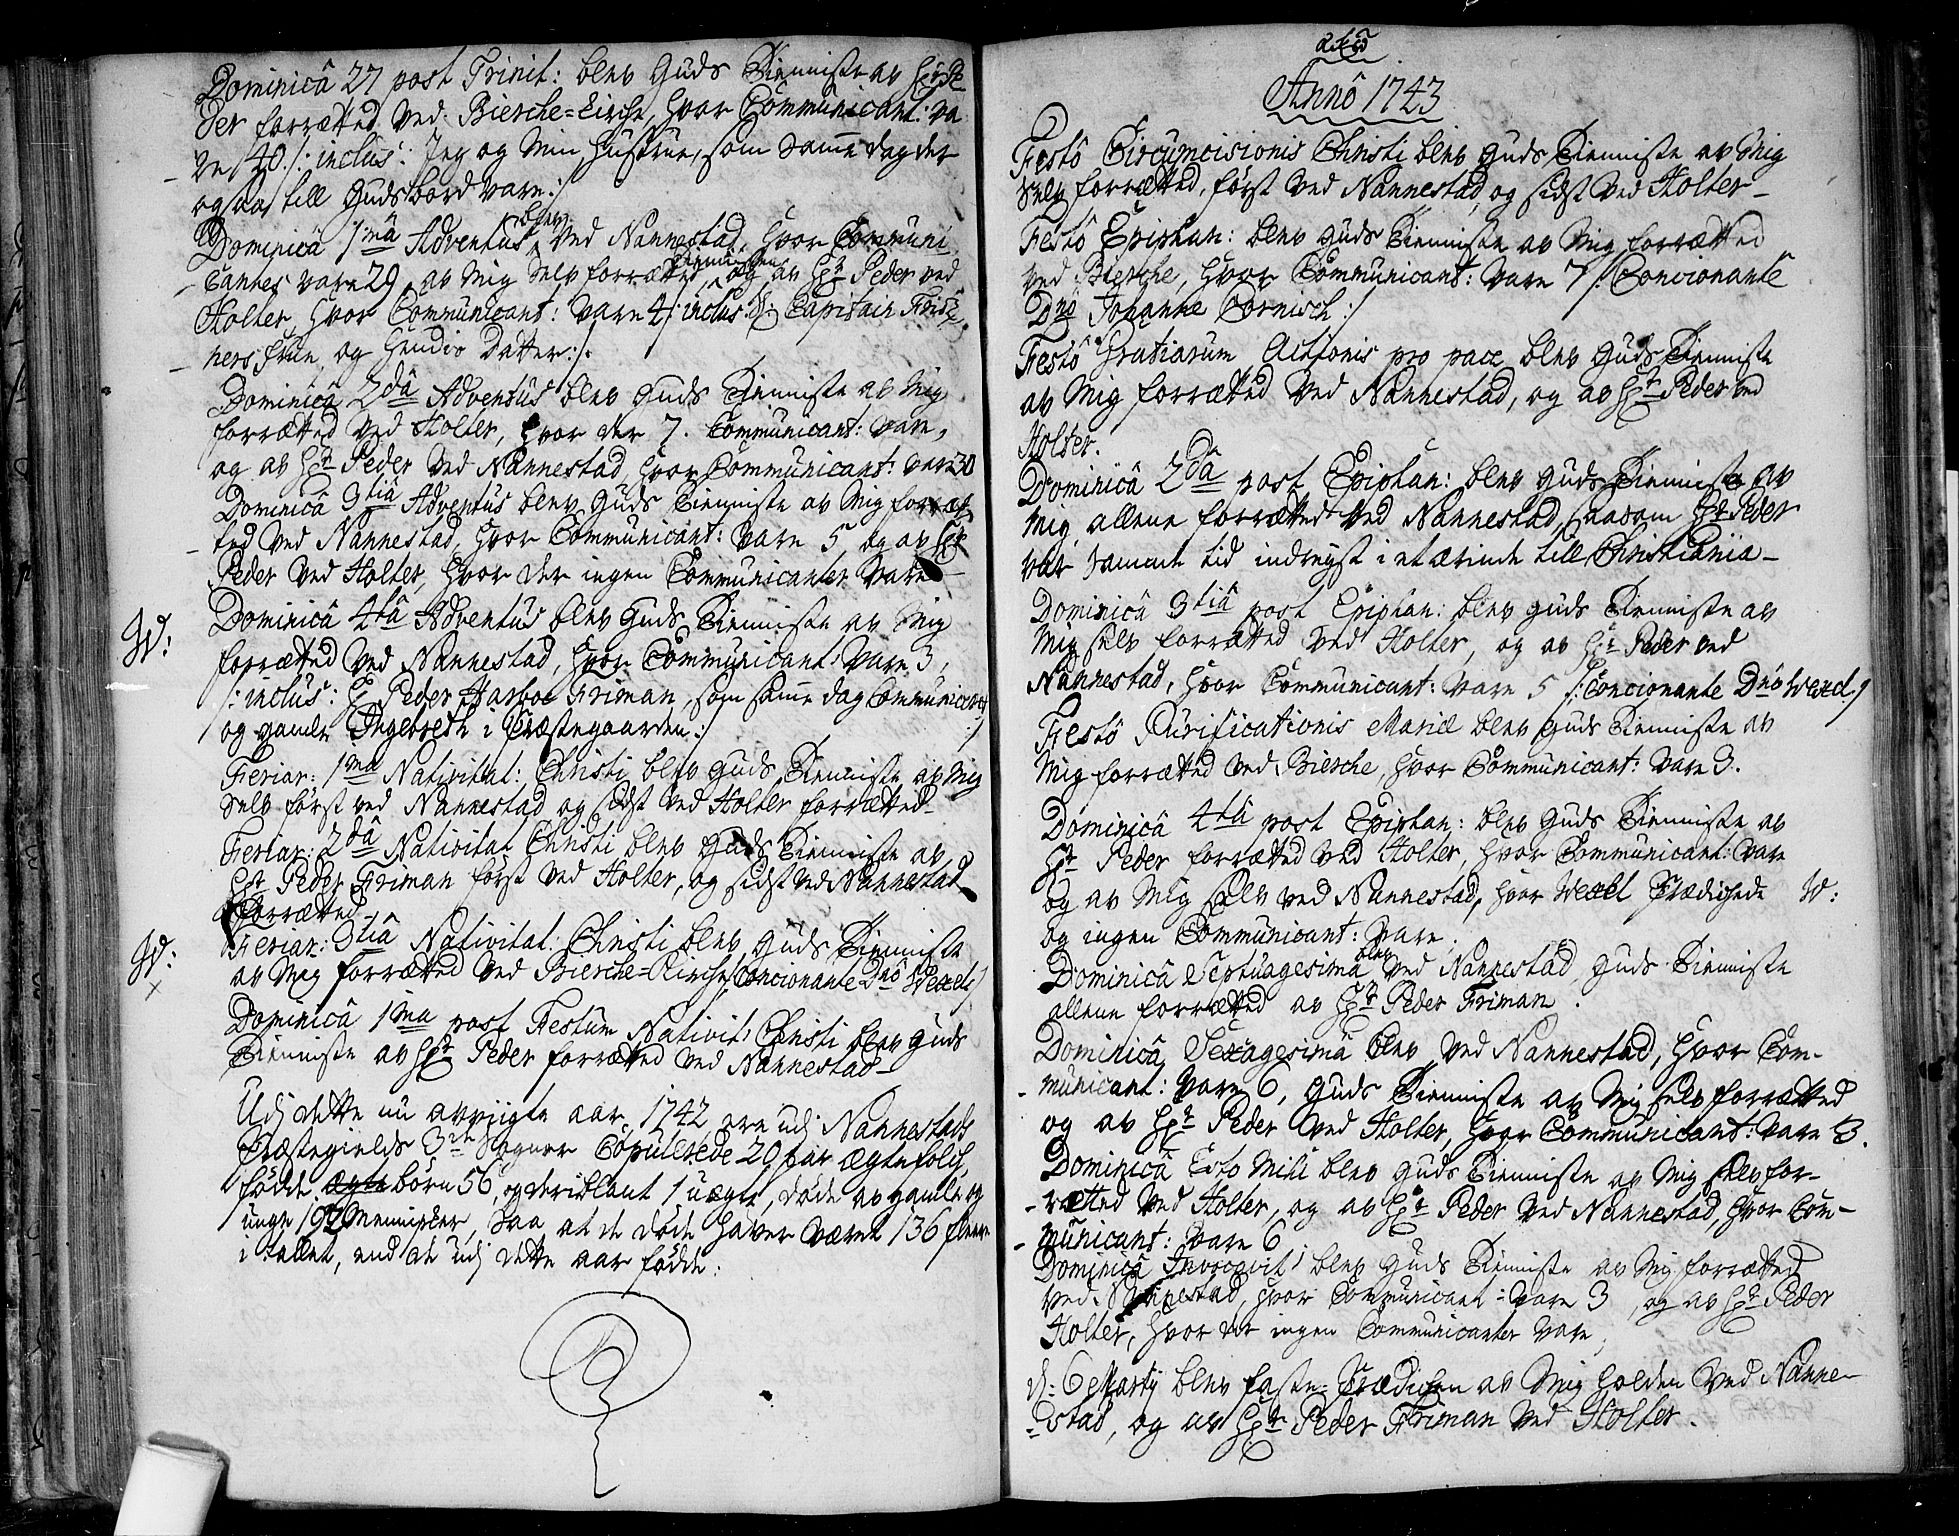 Dominicâ 27 post Trinit: blev Guds Tienniste av Hr Pe
der forrætted ved Bierche=Kirche, hvor Communicant: va
re 40. /: inclus: Jeg og Min Hustrue, som samme dag der
ogsaa till Guds bord vare :/
Dominicâ 1mâ Adventus blev ved Nannestad, hvor Communi
cantes vare 29, av Mig Selv forrætted, og av Hr Peder ved
Holter, hvor Communicant: vare 4 /: inclus: Capitain
ners Frue, og Hendis Datter :/
Dominicâ 2dâ Adventus blev Guds Tienniste av Mig
forrætted ved Holter, hvor der 7. Communicant: vare,
og av Hr Peder ved Nannestad, hvor Communicant: vare 30
Dominicâ 3tiâ Adventus blev Guds Tienniste av Mig forræt
ted ved Nannestad, hvor Communicant: vare 5, og av Hr
Peder ved Holter, hvor der ingen Communicanter vare
W: Dominicâ 4tâ Adventus blev Guds Tienniste av Mig
forrætted ved Nannestad, hvor Communicant: vare 3,
/: inclus: Peder Harboe Friman, som samme dag Communicerede
og gamle Ingebreth i Præstegaarden :/
Feriar: 1ma Nativitat: Christi blev Guds Tienniste av Mig
Selv først ved Nannestad og sidst ved Holter forrætted
Feriar: 2dâ Nativitat Christi blev Guds Tienniste av
Hr Peder Friman først ved Holter, og sidst ved Nannestad
forrætted
W: Feriar: 3tiâ Nativitat: Christi blev Guds Tienniste
av Mig forrætted ved Bierche=Kirche /: Concionante Dnô Wexel :/
Dominicâ 1ma post Festum Nativit: Christi blev Guds
Tienniste av Hr Peder forrætted ved Nannestad
Udj dette nu avvigte aar 1742 ere udj Nannestads
Præstegields 3de Sogner Copulerede 20 par ægtefolch,
fødde børn 56, og deriblant 1 uægte, døde av gamle og
unge 192 Mennisker, saa at de døde haver været 136 fleere
i tallet, end de udj dette aar fødde:
Annô 1743
Festô Circumcisionis Christi blev Guds Tienniste av Mig
Selv forrætted, først ved Nannestad, og sidst ved Holter
Festô Epiphan: blev Guds Tienniste av Mig forrætted
ved Bierche, hvor Communicant: vare 7 /: Concionante
Dnô Johanne Cornisch :/
Festô Gratiarum Actionis pro pace blev Guds Tienniste
av Mig forrætted ved Nannestad, og av Hr Peder ved
Holter.
Dominicâ 2dâ post Epiphan: blev Guds Tienniste av
Mig allene forrætted ved Nannestad, saasom Hr Peder
var samme tid indreyst i et ærinde till Christiania
Dominicâ 3tiâ post Epiphan: blev Guds Tienniste av
Mig selv forrætted ved Holter, og av Hr Peder ved
Nannestad, hvor Communicant: vare 5 /: Concionante Dnô Wexel :/
Festô Purificationis Mariæ blev Guds Tienniste av
Mig forrætted ved Bierche, hvor Communicant: vare 3.
Dominicâ 4tâ post Epiphan: blev Guds Tienniste av
Hr Peder forrætted ved Holter, hvor Communicant: vare
og av Mig selv ved Nannestad, hvor Wexel Prædichede W:
og ingen Communicant: vare.
Dominicâ Septuagesima blev ved Nannestad, Guds Tienniste
allene forrætted av Hr Peder Friman.
Dominicâ Sexagesima blev ved Nannestad, hvor Com-
municant: vare 6, Guds Tienniste av Mig selv forrætted
og av Hr Peder ved Holter, hvor Communicant: vare 3.
Dominicâ Esto Mihi blev Guds Tienniste av Mig selv for-
rætted ved Holter, og av Hr Peder ved Nannestad, hvor Com-
municant: vare 6
Dominicâ Invocavit blev Guds Tienniste av Mig forrætted
ved Nannestad, hvor Communicant: vare 3, og av Hr Peder
Holter, hvor der ingen Communicanter vare,
d: 6 Martij blev faste=Prædichen av Mig holden ved Nanne-
stad, og av Hr Peder Friman ved Holter.